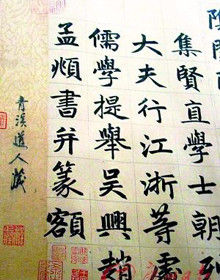 集賢直學士朝
大夫行江浙等處
儒學提舉吳興趙
孟頫書并篆額
青溪道人識